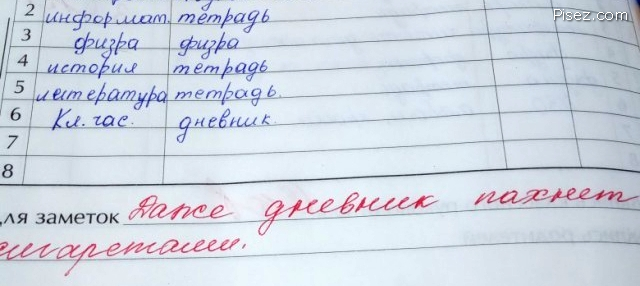 Pisez.com
2 информат. тетрадь
3 физра физра
4 история тетрадь
5 литература тетрадь.
6 Кл. час. дневник.
7
8
для заметок Даже дневник пахнет
сигаретами.